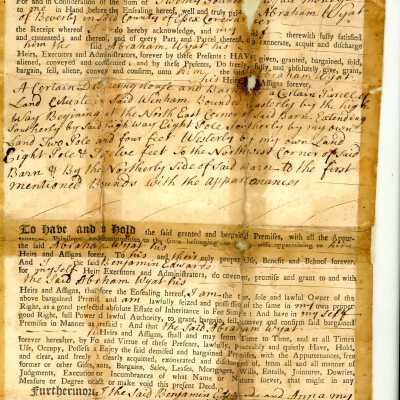 For and in Consideration of the Sum of
to me in Hand before the Ensealing hereof, well and truly paid by Abraham Wyat
of Beverly in Said County of Essex
the Receipt whereof I do hereby acknowledge, and my self
and contented; and thereof, and of every Part, and Parcel thereof, do exonerate, acquit and discharge
him the Said Abraham Wyat his
Heirs, Executors and Administrators, forever by these Presents: HAVE given, granted, bargained, sold,
aliened, conveyed and confirmed; and by these Presents, Do freely, and absolutely give, grant,
bargain, sell, aliene, convey and confirm, unto him the Said Abraham Wyat
his Heirs & Assigns forever,
A Certain Dwelling house and Barn Certain Piece of
Land Situate in Said Wenham Bounded Easterly by the high
Way Begining at the North East Corner of Said Barn Extending
Southerly by Said high Way Eight Pole Southerly by my own
Land Two Pole and four Westerly by my own Land
Eight Pole & Twelve feet to the Northwest Corner of Said
Barn & By the Northerly Side of Said Barn to the first
mentioned Bounds with the appurtenances
To Have and to Hold the said granted and bargained Premises, with all the Appur-
the said Abraham Wyat his
Heirs and Assigns forever, To his and their only proper Use, Benefit and Behoof forever.
And I the Said Benjamin Edwards
for my Self Heirs Executors and Administrators, do covenant, promise and grant to and with
the Said Abraham Wyat his
Heirs and Assigns, that before the Ensealing hereof, I am the true, sole and lawful Owner of the
above bargained Premises, and am lawfully seized and possessed of the same in my own proper
Right, as a good perfect and absolute Estate of Inheritance in Fee Simple: And have in my Self
good Right, full Power and lawful Authority, to grant, bargain, sell, convey and confirm said bargained
Premises in Manner as aforesaid: And that the Said Abraham Wyat his
Heirs and Assigns, shall and may from Time to Time, and at all Times
forever hereafter, by Force and Virtue of these Presents, lawfully, peaceably and quietly Have, Hold,
Use, Occupy, Possess and Enjoy the said demised and bargained Premises, with the Appurtenances, free
and clear, and freely and clearly acquitted, exonerated and discharged of, from all and all manner of
former or other Gifts, Grants, Bargains, Sales, Leases, Mortgages, Wills, Entails, Jointures, Dowries,
Judgments, Executions or Incumbrances of what Name or Nature soever, that might in any
Measure or Degree obstruct or make void this present Deed.
Furthermore, I the Said Benjamin Edwards and Anna my